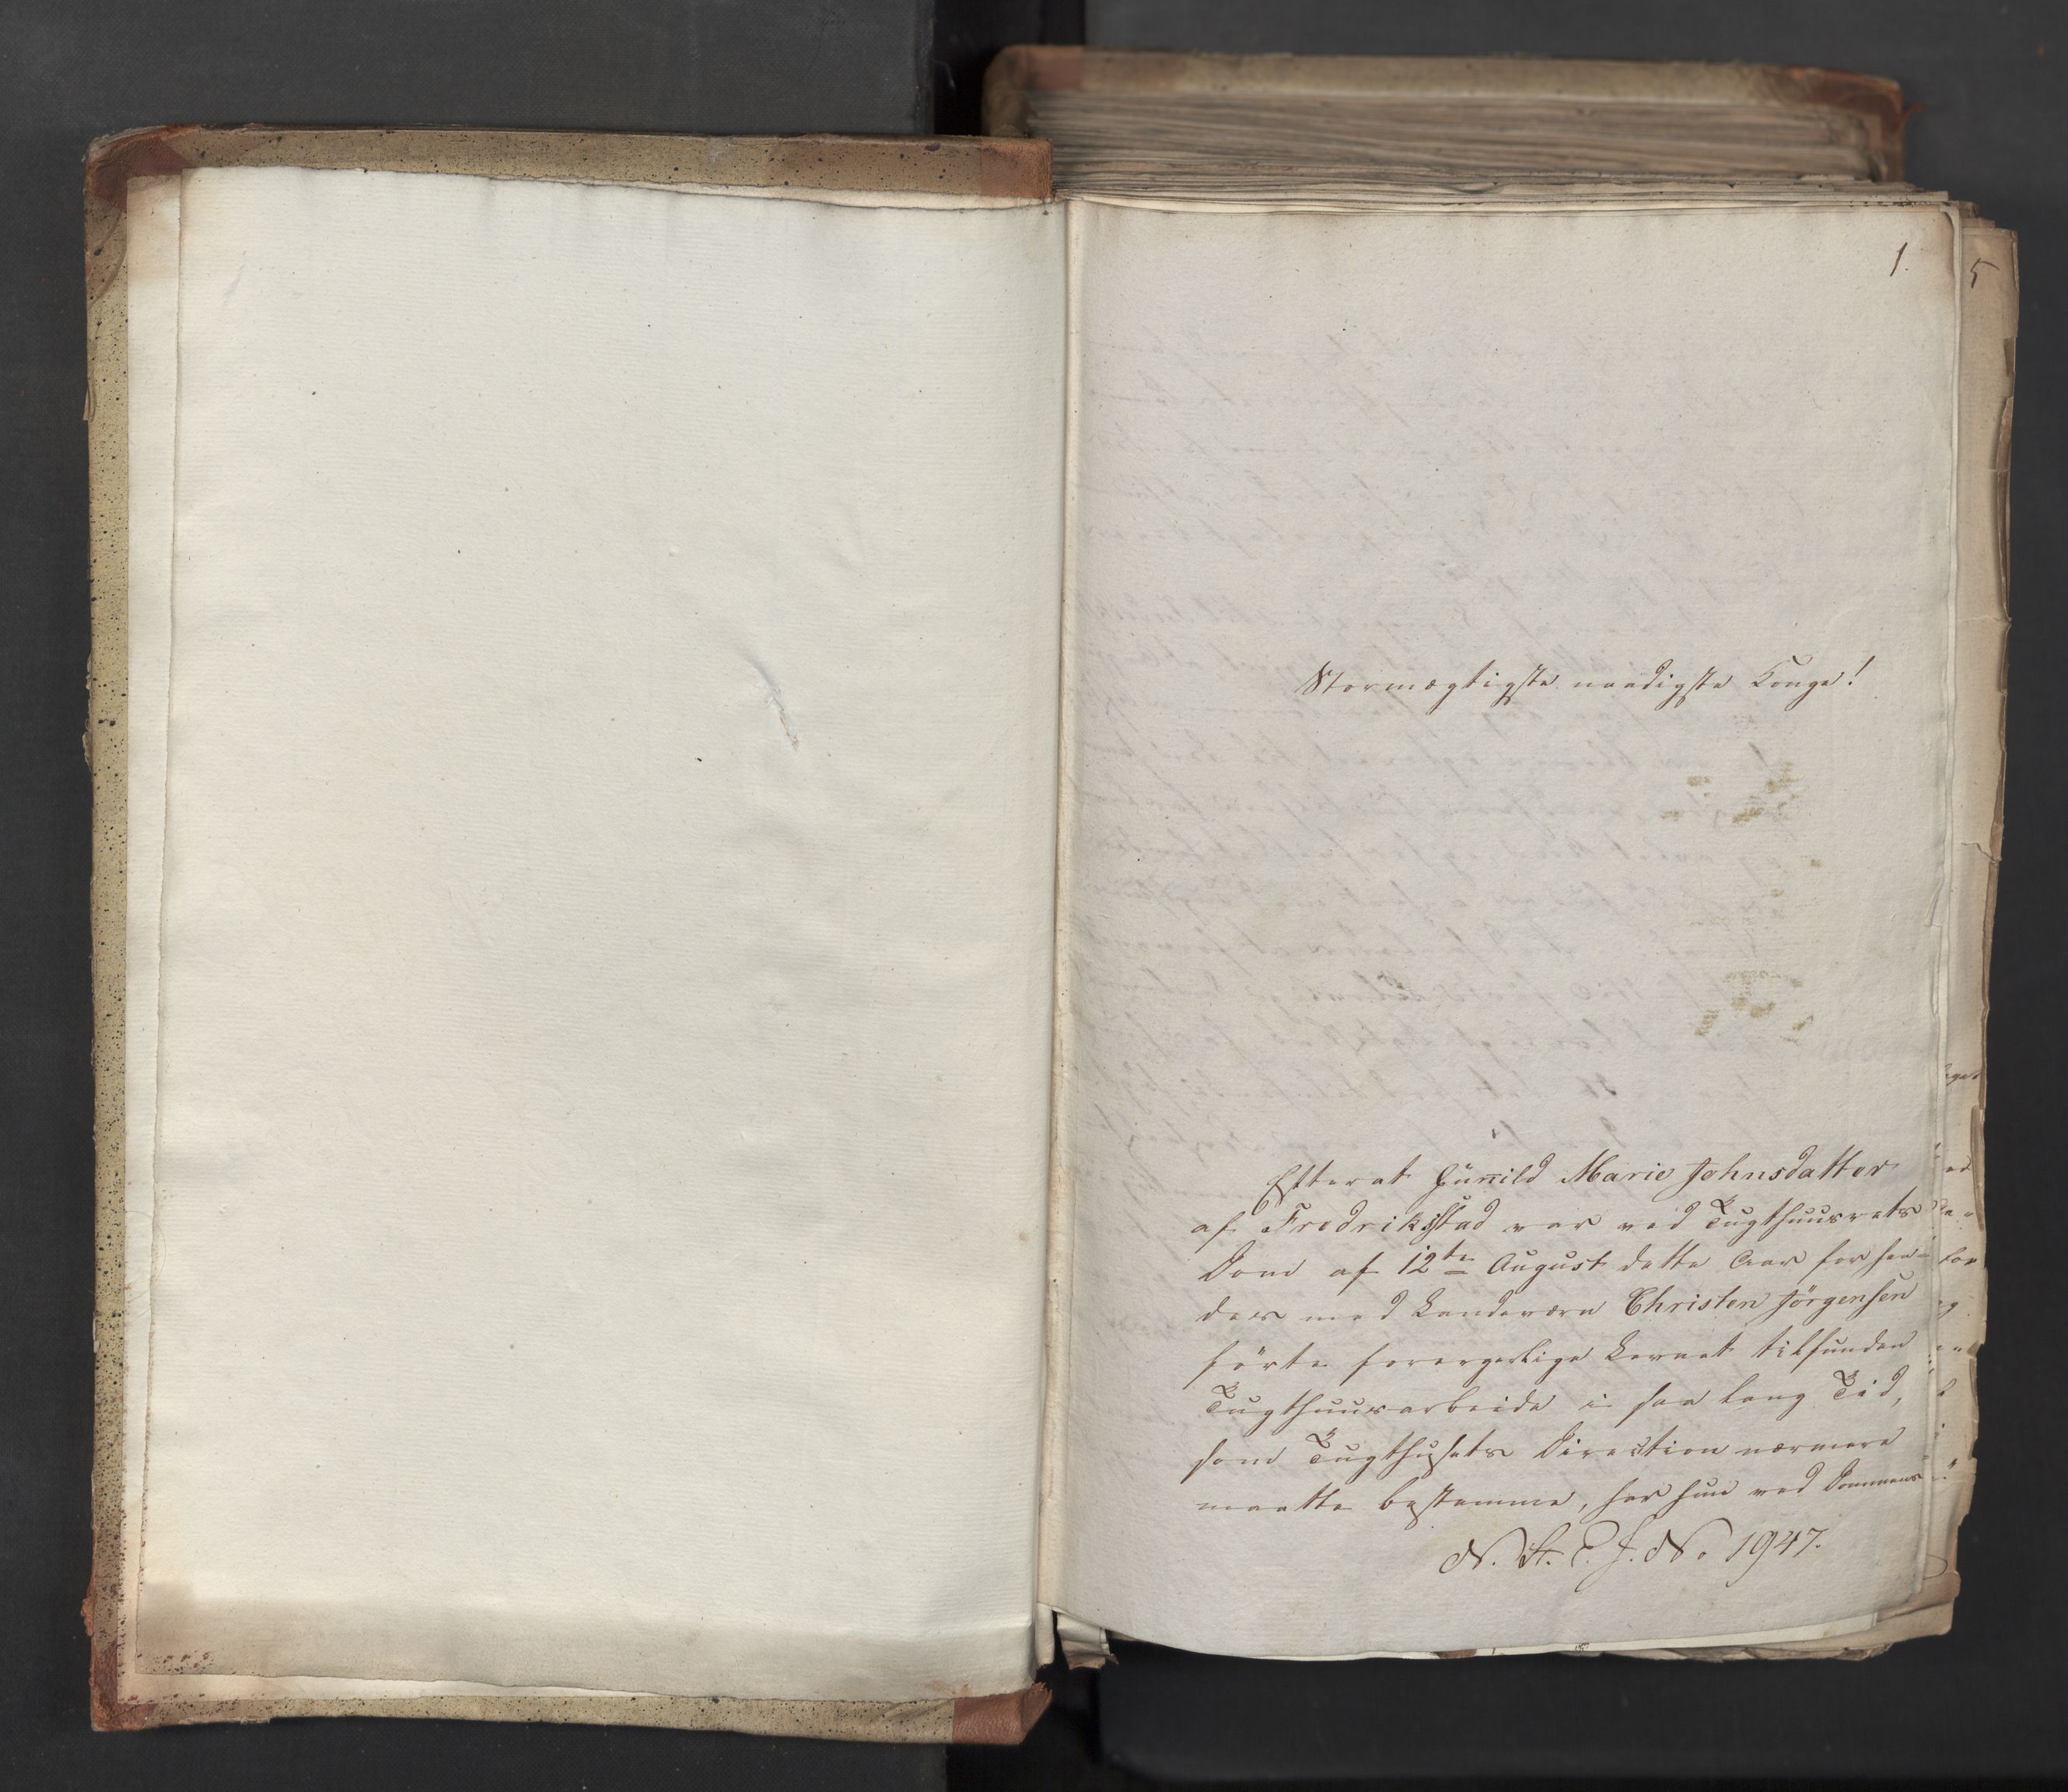 1.
5
Stormægtigste naadigste Konge!
Efterat Gunild Marie Johnsdatter
af Fredrikstad var ved Tugthuusrets
Dom af 12te August dette Aar for hen-
des med Landeværn Christen Jörgensen
förte forargerlige Levnet tilfunden
Tugthuusarbeide i saa lang Tid,
som Tugthusets Direction nærmere
maatte bestemme, har hun ved Dommens
N. St. C. J. No 1947.